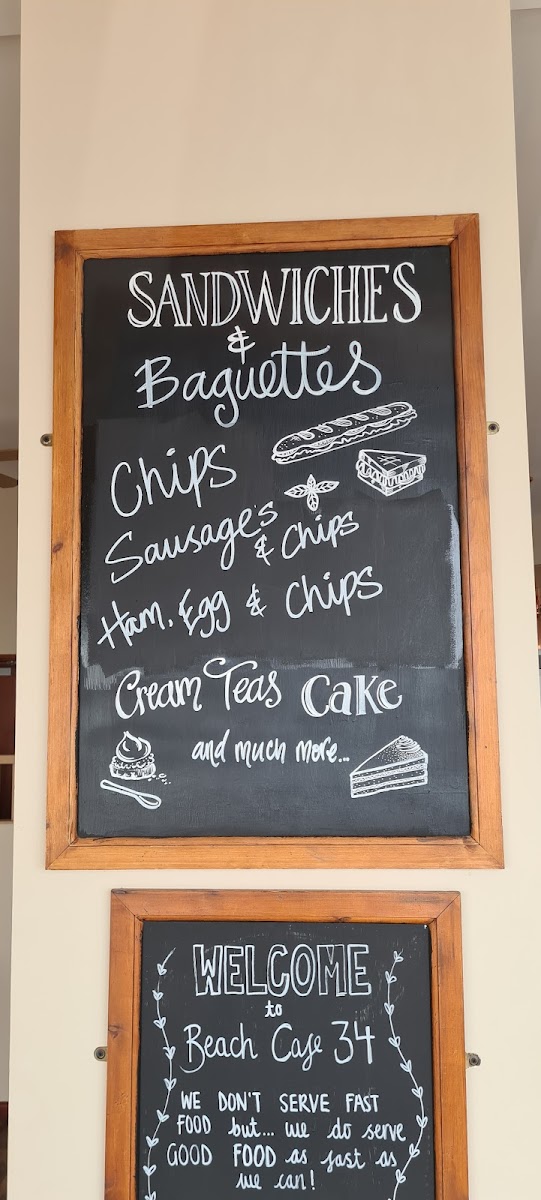 SANDWICHES
&
Baguettes
Chips
Sausage's
& Chips
Ham, Egg & Chips
Cream Teas Cake
and much more...
WELCOME
to
Beach Cafe 34
WE DON'T SERVE FAST
FOOD but... we do serve
GOOD FOOD as fast as
we can!